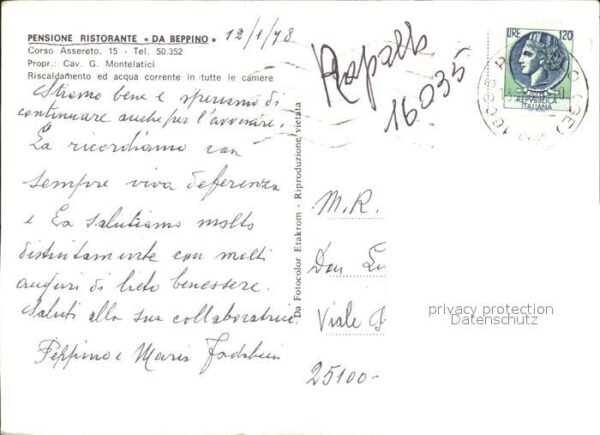 PENSIONE RISTORANTE « DA BEPPINO » 12/1/78
Corso Assereto, 15 - Tel. 50.352
Propr.: Cav. G. Montelatici
Riscaldamento ed acqua corrente in tutte le camere
Stiamo bene e speriamo di
continuare anche per l'avvenire.
La ricordiamo con
sempre viva deferenza
e La salutiamo molto
distintamente con molti
auguri di lieto benessere.
Saluti alla sua collaboratrice
Peppino e Maria
Rapallo
16035
Da Fotocolor Etakrom - Riproduzione vietata
LIRE 120
REPUBBLICA
ITALIANA
(GE)
M. R.
Don
Viale
25100-
privacy protection
Datenschutz